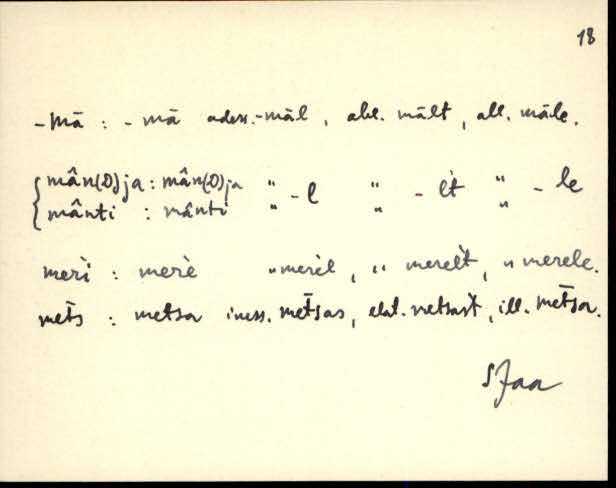 18
-mā : -mā adess. -māl, abl. mālt, all. māle.
{ mân(D)ja : mân(D)ja " -l " -l̀t " -le
{ mânti : mânti " "  "
merì̬ : merè " merèl, " merel̀t, " merele.
met̄s : metsa iness. met̄sas, elat. metsast̀, ill. met̄sa.
SJaa